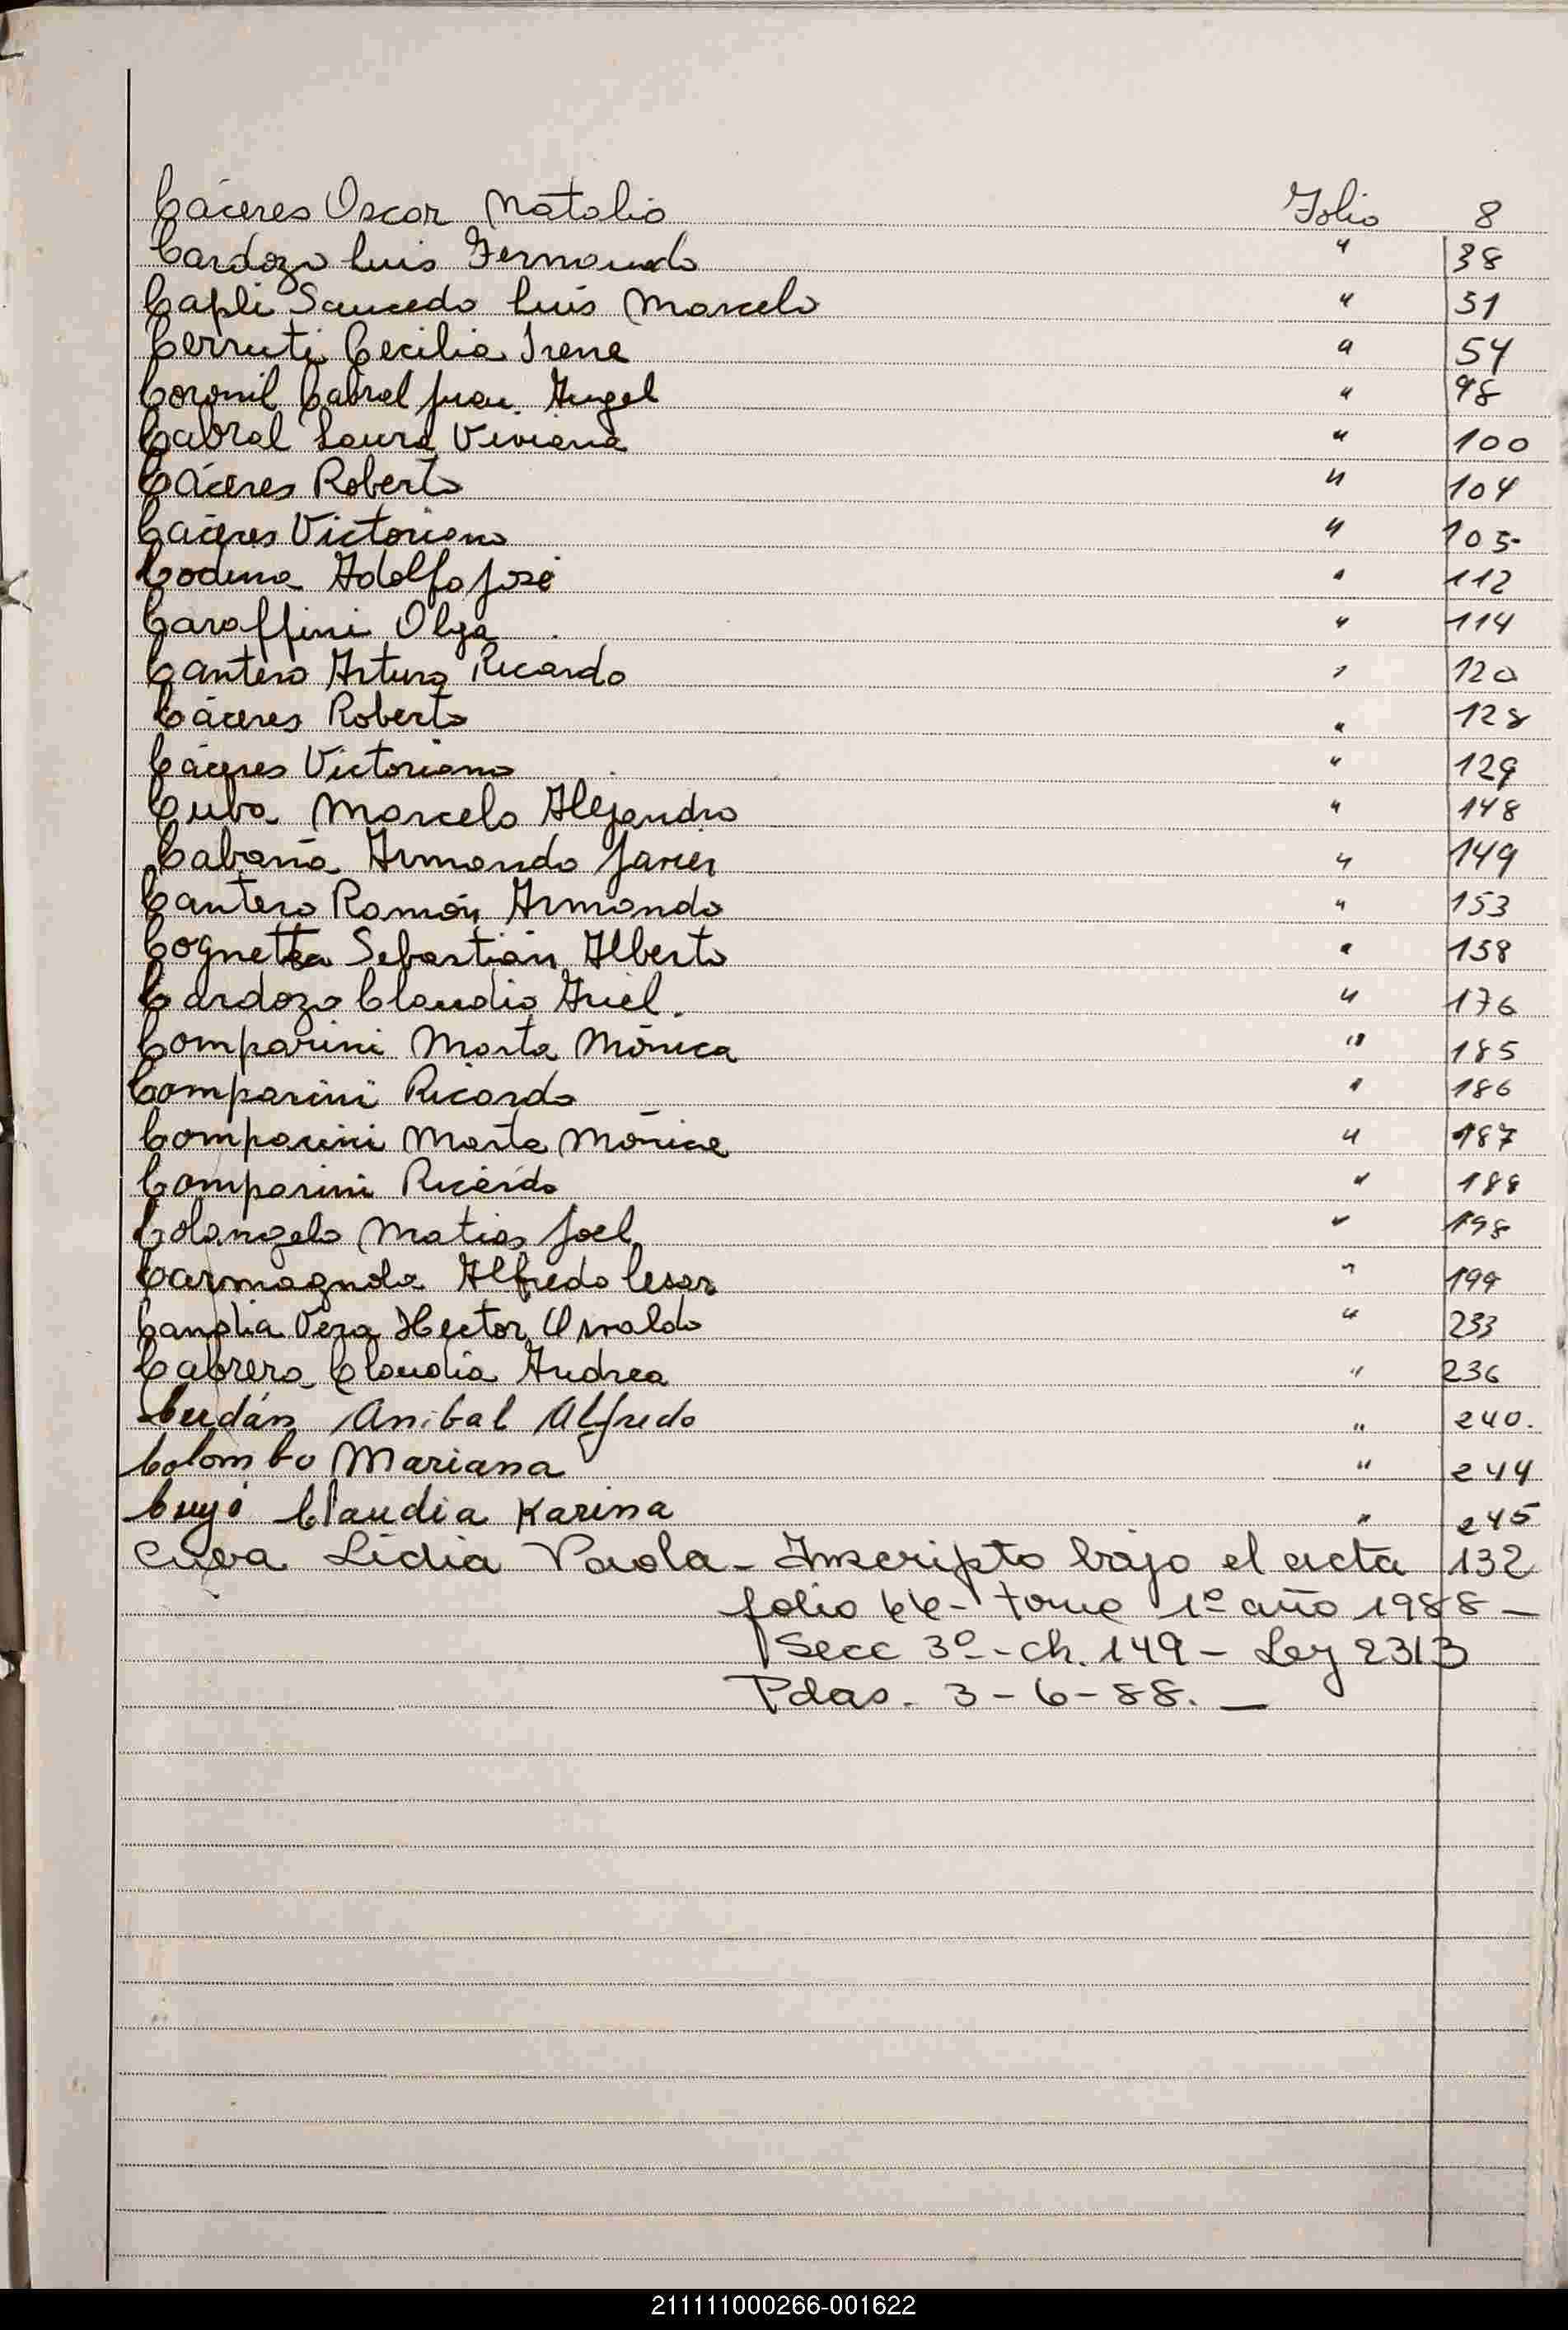 Cáceres Oscar Natalio Folio 8
Cardozo Luis Fernando " 38
Capli Saucedo Luis Marcelo " 51
Cerruti Cecilia Irene " 54
Coronil Cabral Juan Angel " 98
Cabral Laura Viviana " 100
Cáceres Roberto " 104
Cáceres Victoriano " 105
Codina Adolfo José " 112
Caraffini Olga " 114
Cantero Arturo Ricardo " 120
Cáceres Roberto " 128
Cáceres Victoriano " 129
Cuba Marcelo Alejandro " 148
Cabaña Armando Javier " 149
Cantero Ramón Armando " 153
Cognetta Sebastián Alberto " 158
Cardozo Claudio Ariel. " 176
Comparini Marta Mónica " 185
Comparini Ricardo " 186
Comparini Marta Mónica " 187
Comparini Ricardo " 188
Colangelo Matias Joel " 198
Carmagnola Alfredo Cesar " 199
Candia Vera Hector Osvaldo " 233
Cabrera Claudia Andrea " 236
Cerdán Anibal Alfredo " 240.
Colombo Mariana " 244
Cuyé Claudia Karina " 245
Cuva Lidia Paola - Inscripto bajo el acta 132
folio 66 - tomo 1º año 1988 -
Secc 3º - Ch. 149 - Ley 2313
Pdas. 3-6-88. -
211111000266-001622